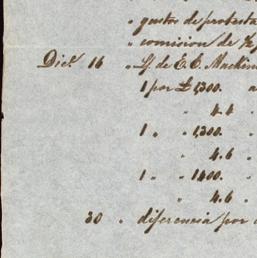 " gastos de protesta
" comision de ½
Dicᵉ 16 " L/ de E. E. Mackin
1 por £1,300. a
" 4.4 "
1 " " 1,300. "
" 4.6 "
1 " " 1400. "
" 4.6 "
30 " diferencia por